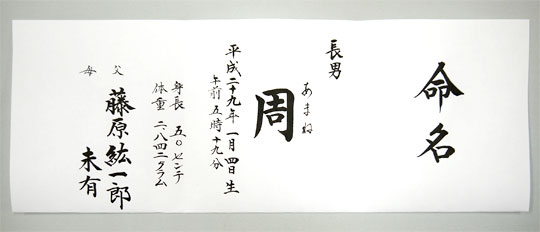 命名
長男
周
あまね
平成二十九年一月四日生
午前五時十九分
身長 五〇センチ
体重 二、八四二グラム
父 藤原紘一郎
母 未有